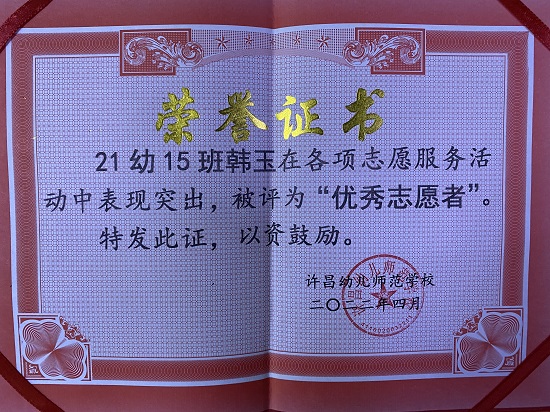 荣誉证书
21幼15班韩玉在各项志愿服务活
动中表现突出，被评为“优秀志愿者”。
特发此证，以资鼓励。
许昌幼儿师范学校
二〇二二年四月